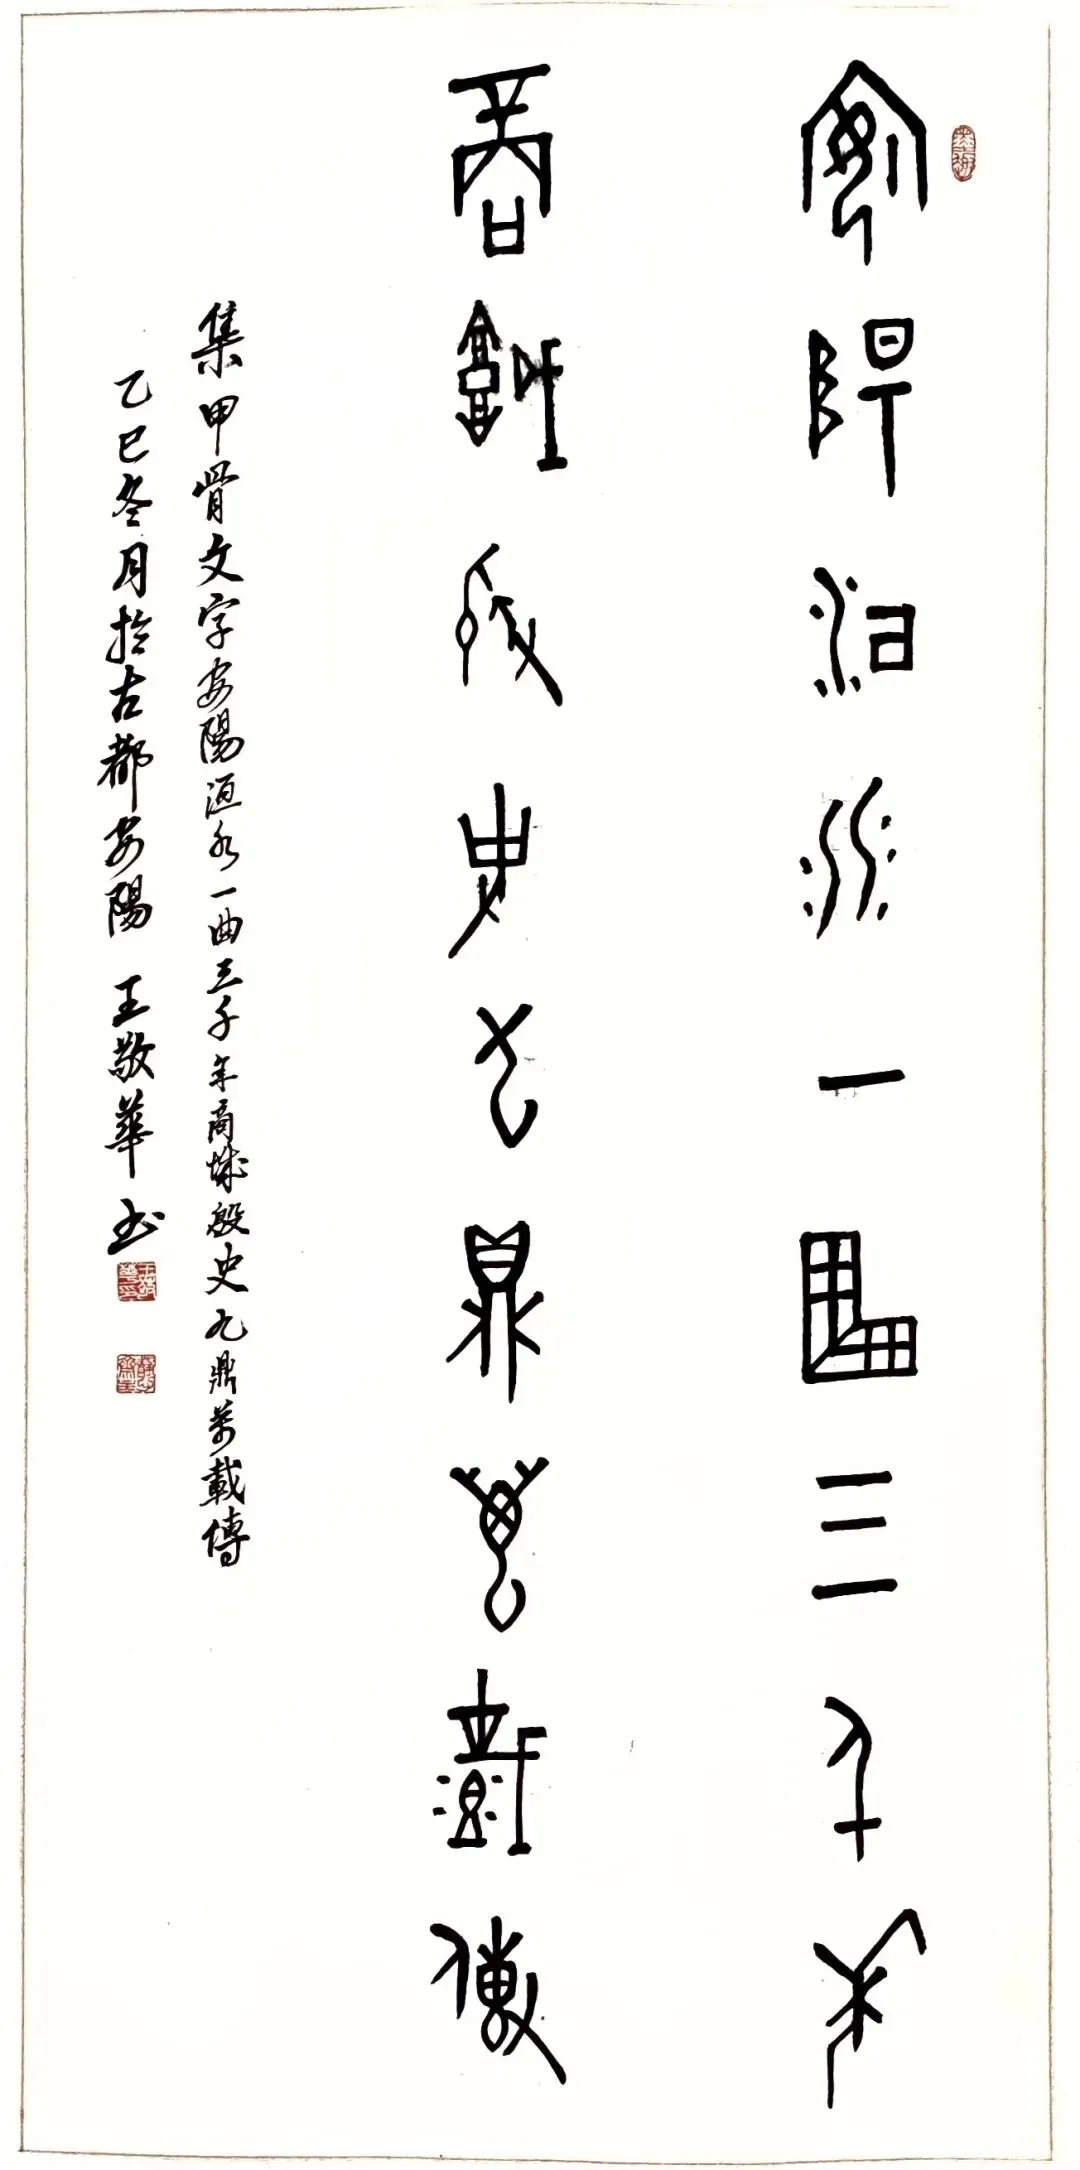 安陽洹水一曲三千年
商城殷史九鼎萬載傳
集甲骨文字安陽洹水一曲三千年商城殷史九鼎万載傳
乙巳冬月於古都安陽 王敬華书